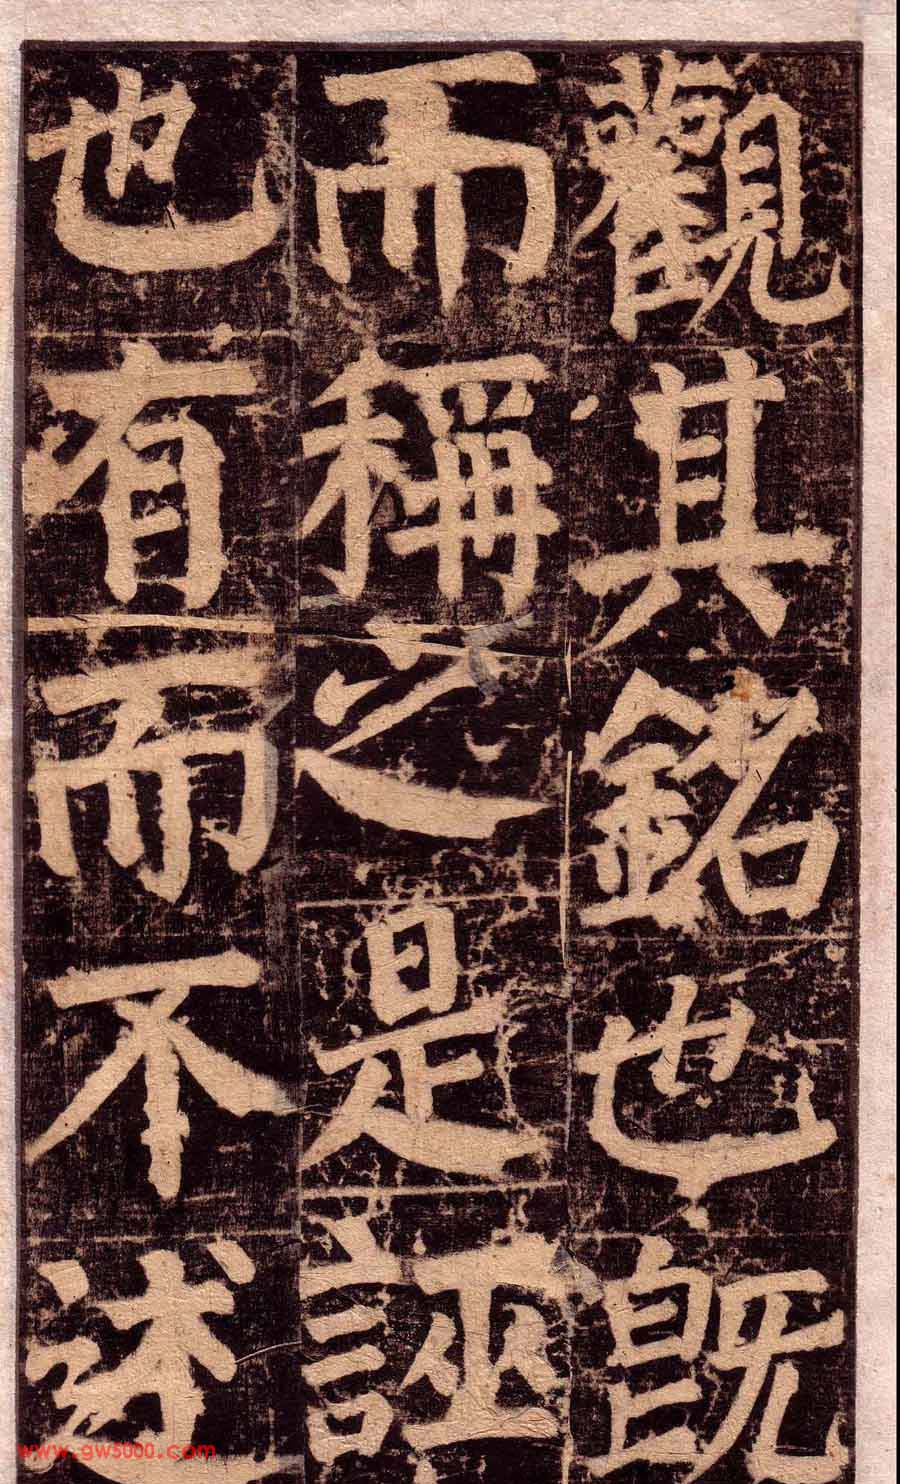 觀其銘也既
而稱之是誣
也有而不述
www.gw5000.com